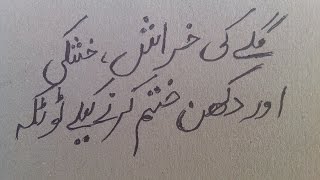 گلے کی خراش، خشکی
اور دکھن ختم کرنے کیلئے ٹوٹکہ